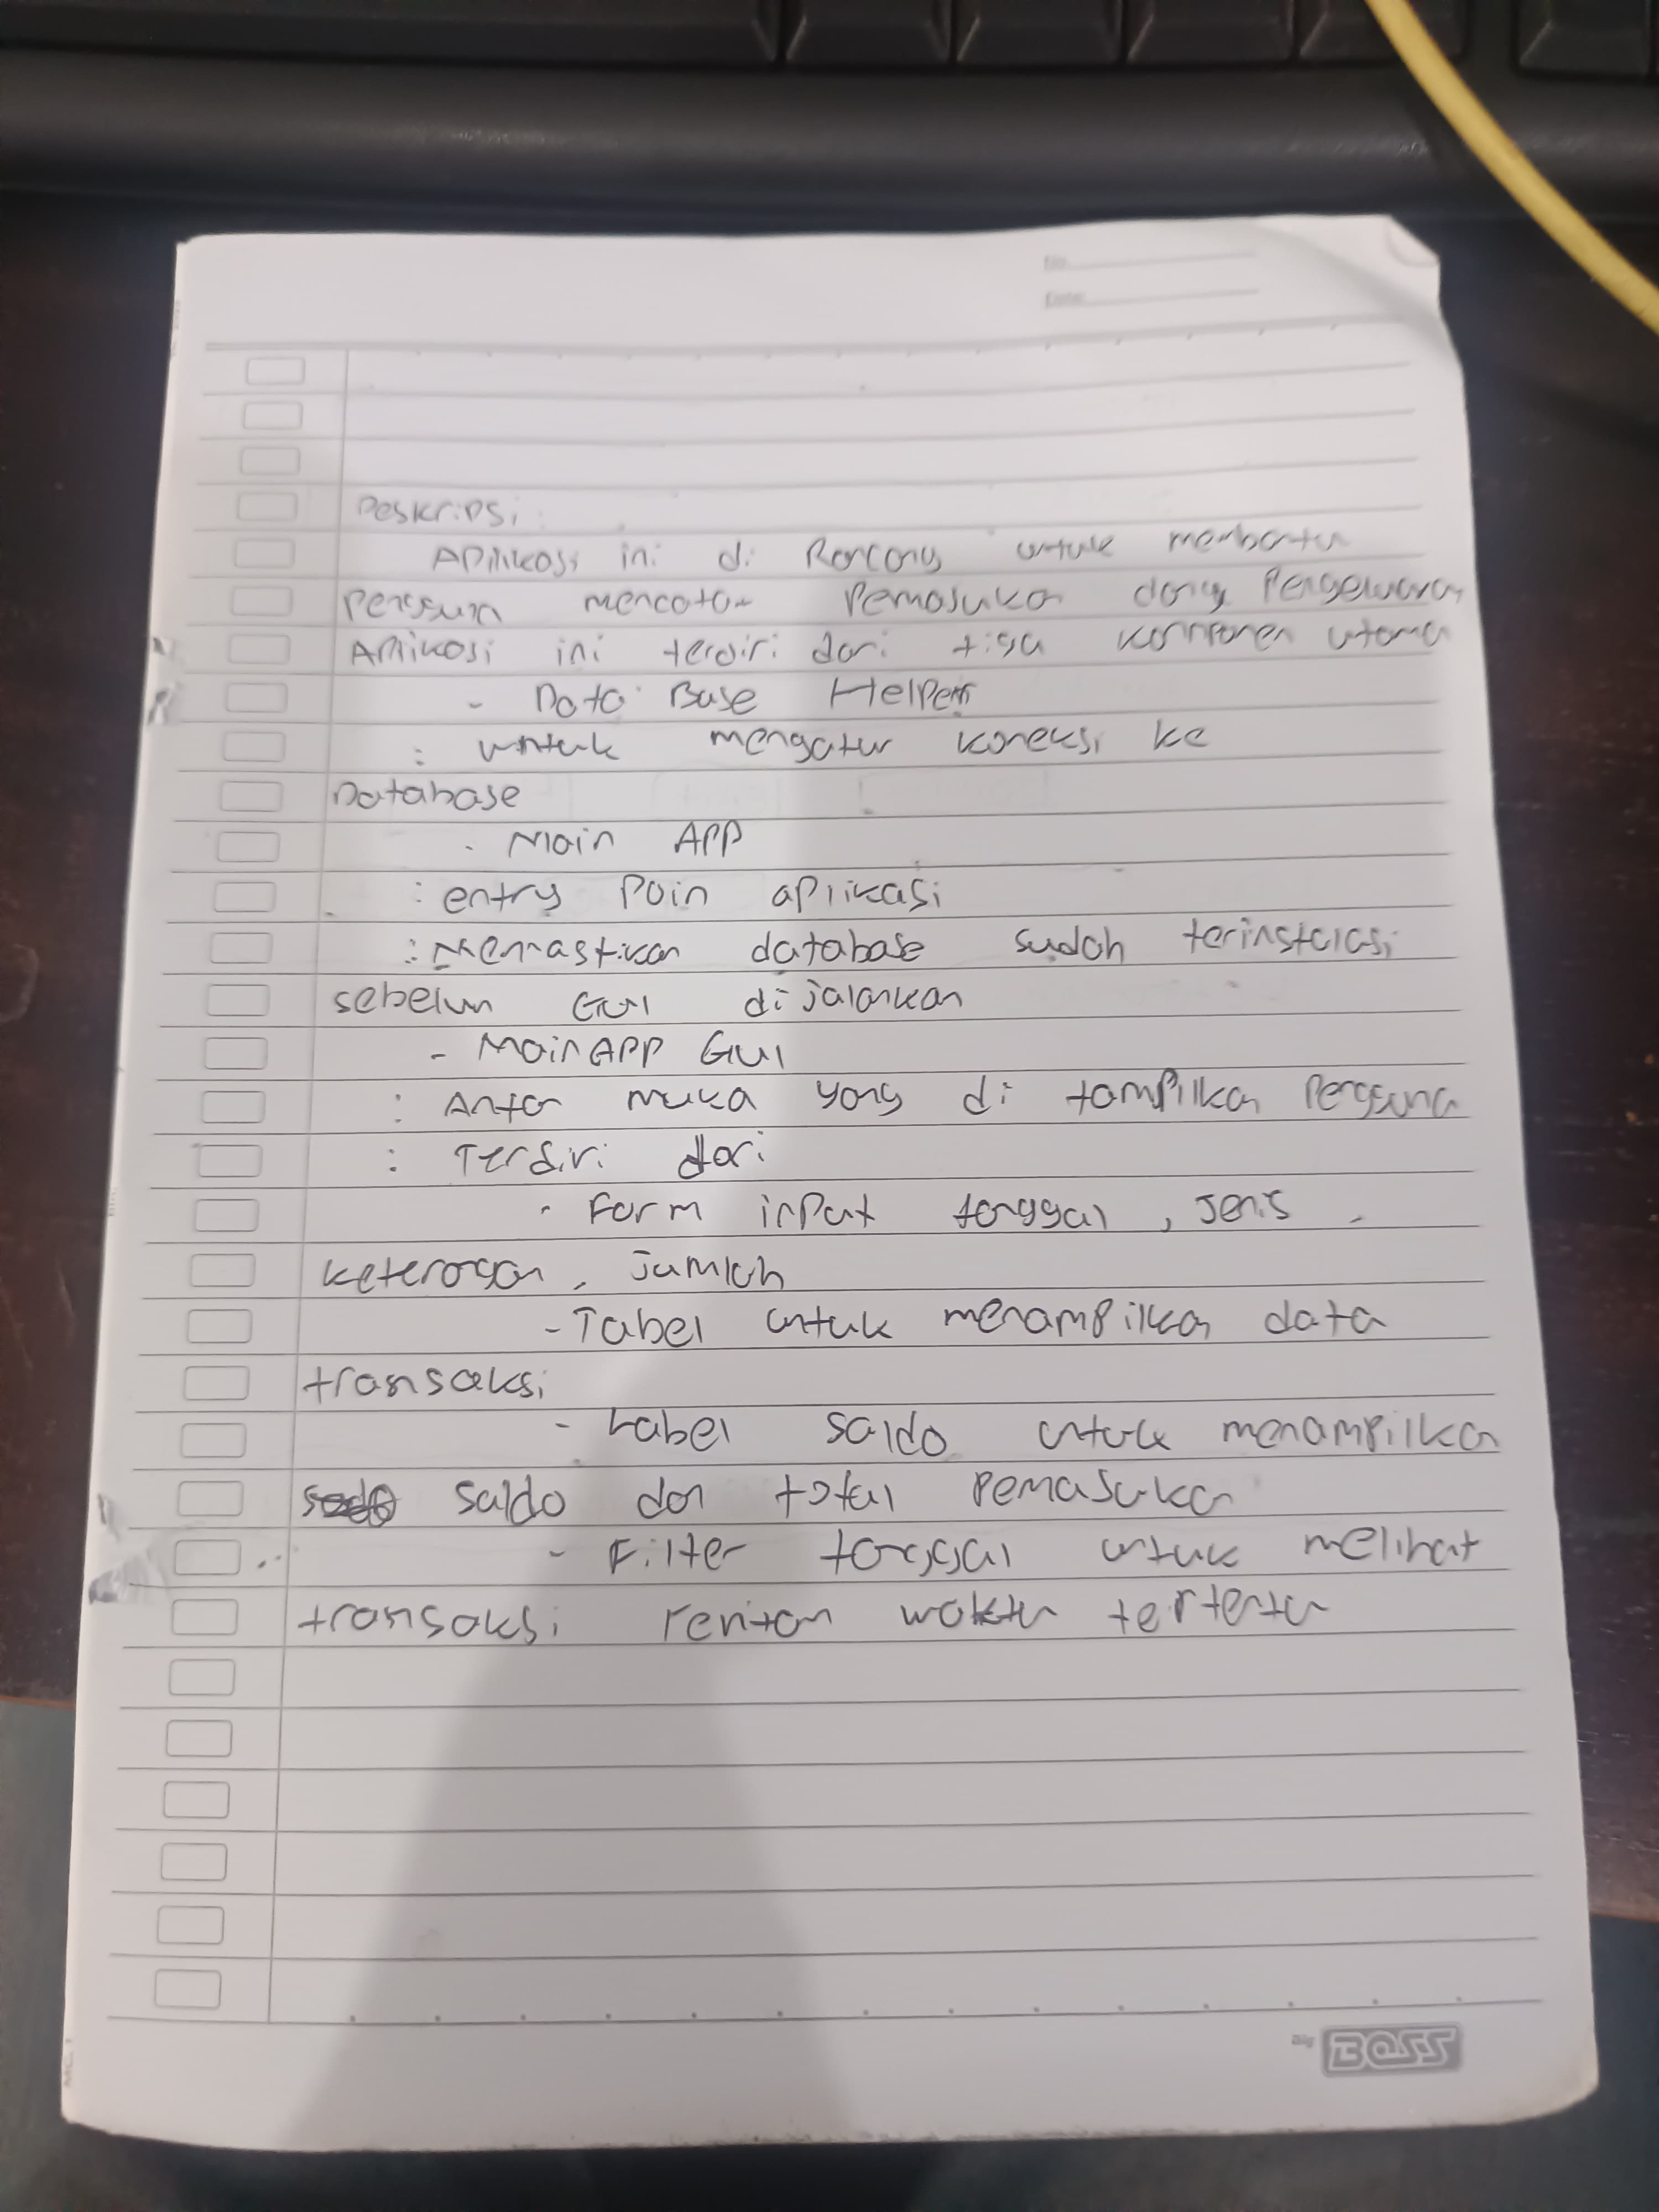 No
Date
Deskripsi :
Aplikasi ini di Rancang untuk membantu
Pengguna mencatat Pemasukan dang Pengeluaran
Aplikasi ini terdiri dari tiga komponen utama
- Data Base Helper
: untuk mengatur koneksi ke
Database
- Main APP
: entry Poin aplikasi
: Memastikan database sudah terinstalasi
sebelum GUI di jalankan
- MainAPP GUI
: Antar muka yang di tampilkan Pengguna
: Terdiri dari
- Form input tanggal , Jenis ,
keterangan , Jumlah
- Tabel untuk menampilkan data
transaksi
- Label saldo untuk menampilkan
saldo dan total Pemasukan
- Filter tanggal untuk melihat
transaksi rentan waktu tertentu
Big BOSS